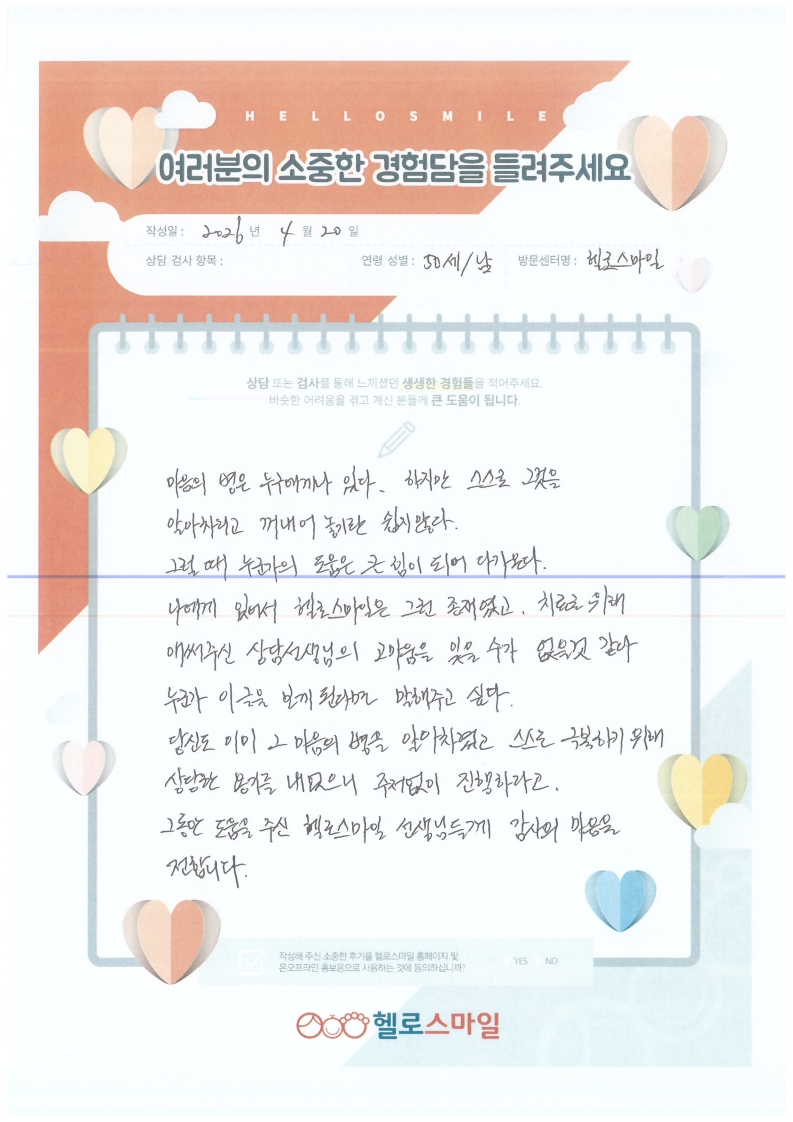 HELLOSMILE
여러분의 소중한 경험담을 들려주세요
작성일 : 2026 년 4 월 20 일
상담 검사 항목 : 연령 성별 : 50세/남 방문센터명 : 헬로스마일
상담 또는 검사를 통해 느끼셨던 생생한 경험들을 적어주세요.
비슷한 어려움을 겪고 계신 분들께 큰 도움이 됩니다.
마음의 병은 누구에게나 있다. 하지만 스스로 그것을
알아차리고 꺼내어 놓기란 쉽지않다.
그럴 때 누군가의 도움은 큰 힘이 되어 다가온다.
나에게 있어서 헬로스마일은 그런 존재였고, 치료를 위해
애써주신 상담선생님의 고마움을 잊을 수가 없을것 같다
누군가 이 글을 보게 된다면 말해주고 싶다.
당신도 이미 그 마음의 병을 알아차렸고 스스로 극복하기 위해
상당한 용기를 내었으니 주저없이 진행하라고.
그동안 도움을 주신 헬로스마일 선생님들께 감사의 마음을
전합니다.
작성해 주신 소중한 후기를 헬로스마일 홈페이지 및
온오프라인 홍보용으로 사용하는 것에 동의하십니까? YES NO
헬로스마일